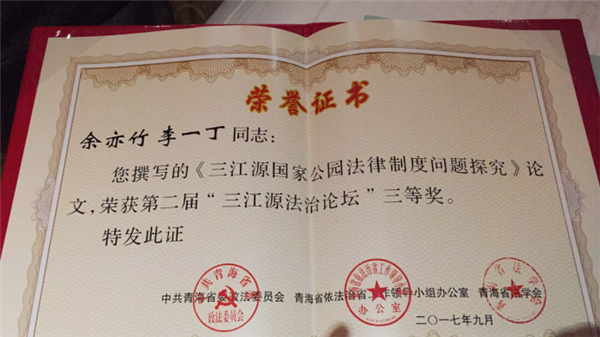 荣誉证书
余亦竹 李一丁同志：
您撰写的《三江源国家公园法律制度问题探究》论
文，荣获第二届“三江源法治论坛”三等奖。
特发此证
中共青海省委政法委员会 青海省依法治省工作领导小组办公室 青海省法学会
二〇一七年九月
中共青海省
政法委员会
办公室